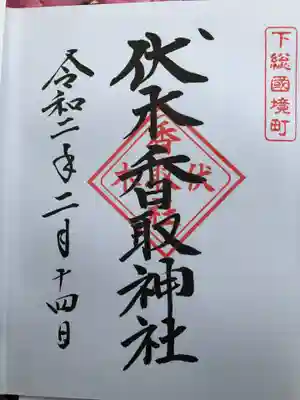 下総國境町
伏木香取神社
令和二年二月十四日